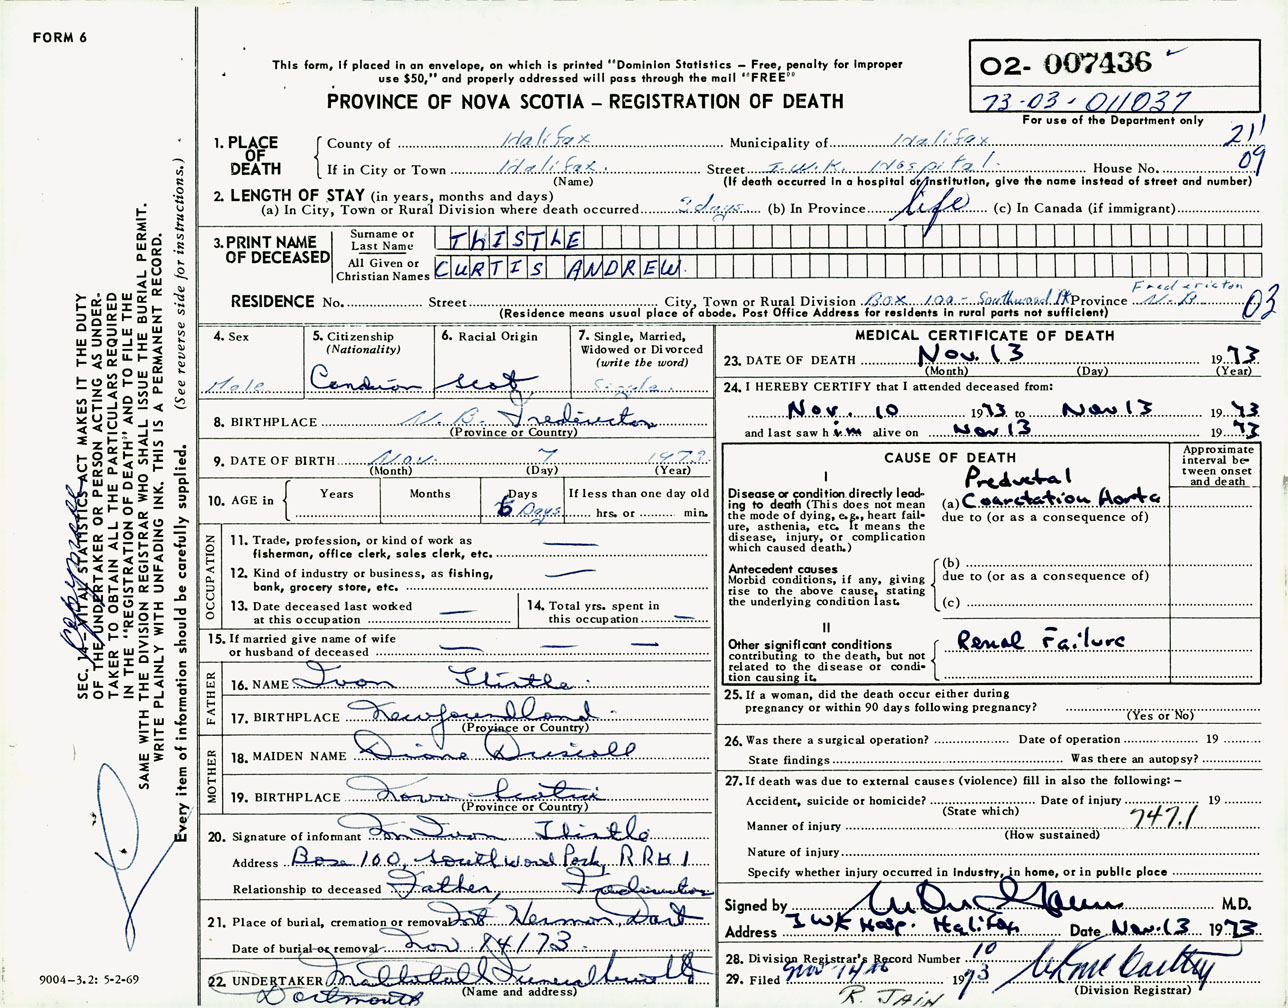 FORM 6
This form, If placed in an envelope, on which is printed "Dominion Statistics – Free, penalty for improper
use $50," and properly addressed will pass through the mail "FREE"
PROVINCE OF NOVA SCOTIA – REGISTRATION OF DEATH
O2- 007436
73-03-011037
For use of the Department only
1. PLACE OF DEATH
County of Halifax Municipality of Halifax 211
If in City or Town Halifax. Street I.W.K. Hospital. House No. 09
(Name) (If death occurred in a hospital or institution, give the name instead of street and number)
2. LENGTH OF STAY (in years, months and days)
(a) In City, Town or Rural Division where death occurred days (b) In Province life (c) In Canada (if immigrant)
3. PRINT NAME OF DECEASED
Surname or Last Name THISTLE
All Given or Christian Names CURTIS ANDREW.
Fredericton
RESIDENCE No. Street City, Town or Rural Division Box 100 - Southwood Pk Province N.B. 03
(Residence means usual place of abode. Post Office Address for residents in rural parts not sufficient)
4. Sex
Male
5. Citizenship
(Nationality)
Canadian
6. Racial Origin
Scot
7. Single, Married,
Widowed or Divorced
(write the word)
Single
8. BIRTHPLACE N.B. Fredericton
(Province or Country)
9. DATE OF BIRTH Nov. 7 1973
(Month) (Day) (Year)
10. AGE in Years Months Days If less than one day old
6 Days hrs. or min.
OCCUPATION
11. Trade, profession, or kind of work as
fisherman, office clerk, sales clerk, etc. —
12. Kind of industry or business, as fishing,
bank, grocery store, etc. —
13. Date deceased last worked
at this occupation —
14. Total yrs. spent in
this occupation —
15. If married give name of wife
or husband of deceased — — —
FATHER
16. NAME Ivon Thistle.
17. BIRTHPLACE Newfoundland.
(Province or Country)
MOTHER
18. MAIDEN NAME Diane Driscoll
19. BIRTHPLACE Nova Scotia
(Province or Country)
20. Signature of informant Ivon Thistle
Address Box 100, Southwood Park, RR# 1
Relationship to deceased Father, Fredericton
21. Place of burial, cremation or removal Mt Hermon, Dart
Date of burial or removal Nov 14/73
22. UNDERTAKER Funeral
(Name and address)
Dartmouth
MEDICAL CERTIFICATE OF DEATH
23. DATE OF DEATH Nov. 13 1973
(Month) (Day) (Year)
24. I HEREBY CERTIFY that I attended deceased from:
Nov. 10 1973 to Nov 13 1973
and last saw him alive on Nov 13 1973
CAUSE OF DEATH
Approximate
interval be-
tween onset
and death
I
Disease or condition directly lead-
ing to death (This does not mean
the mode of dying, e.g., heart fail-
ure, asthenia, etc. It means the
disease, injury, or complication
which caused death.)
Preductal
(a) Coarctation Aorta
due to (or as a consequence of)
Antecedent causes
Morbid conditions, if any, giving
rise to the above cause, stating
the underlying condition last.
(b)
due to (or as a consequence of)
(c)
II
Other significant conditions
contributing to the death, but not
related to the disease or condi-
tion causing it.
Renal Failure
25. If a woman, did the death occur either during
pregnancy or within 90 days following pregnancy?
(Yes or No)
26. Was there a surgical operation? Date of operation 19
State findings Was there an autopsy?
27. If death was due to external causes (violence) fill in also the following: –
Accident, suicide or homicide? Date of injury 19
(State which)
Manner of injury 747.1
(How sustained)
Nature of injury
Specify whether injury occurred in Industry, in home, or in public place
Signed by M.D.
Address IWK Hosp. Halifax Date Nov. 13 1973
28. Division Registrar's Record Number 10
29. Filed Nov 14 1973
(Division Registrar)
R. JAIN
SEC. 14 – VITAL STATISTICS ACT MAKES IT THE DUTY
OF THE UNDERTAKER OR PERSON ACTING AS UNDER-
TAKER TO OBTAIN ALL THE PARTICULARS REQUIRED
IN THE "REGISTRATION OF DEATH" AND TO FILE THE
SAME WITH THE DIVISION REGISTRAR WHO SHALL ISSUE THE BURIAL PERMIT.
WRITE PLAINLY WITH UNFADING INK. THIS IS A PERMANENT RECORD.
Every item of information should be carefully supplied. (See reverse side for instructions.)
9004–3.2: 5-2-69